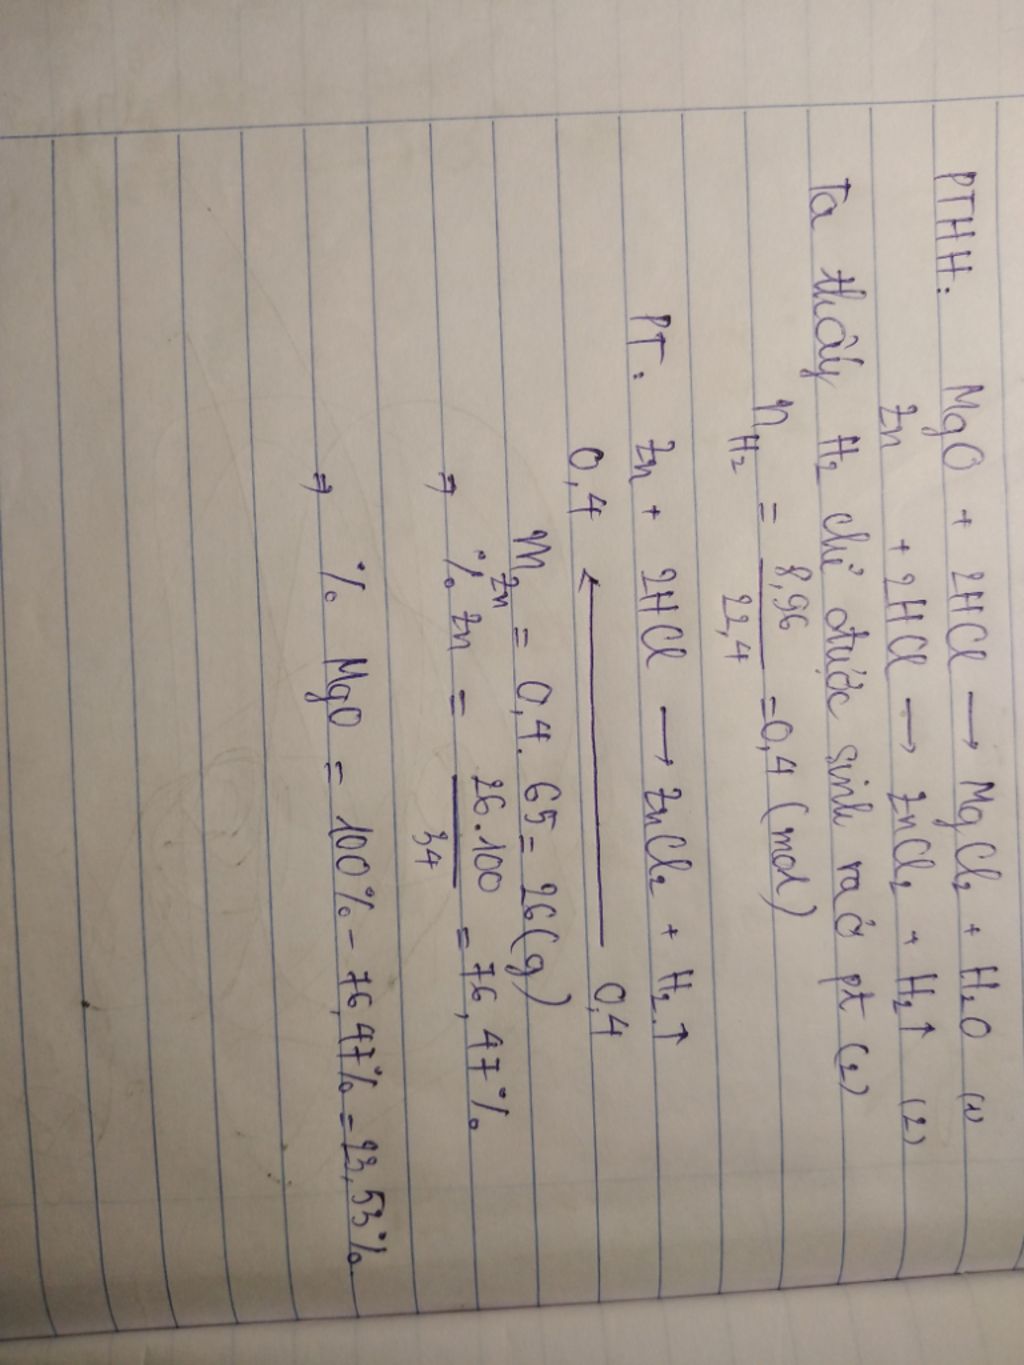 PTHH: MgO + 2HCl → MgCl₂ + H₂O (1)
Zn + 2HCl → ZnCl₂ + H₂↑ (2)
Ta thấy H₂ chỉ được sinh ra ở pt (2)
n_H₂ = 8,96/22,4 = 0,4 (mol)
PT: Zn + 2HCl → ZnCl₂ + H₂↑
0,4 ← 0,4
m_Zn = 0,4. 65 = 26(g)
⇒ % Zn = 26.100/34 = 76,47%
⇒ % MgO = 100% - 76,47% = 23,53%